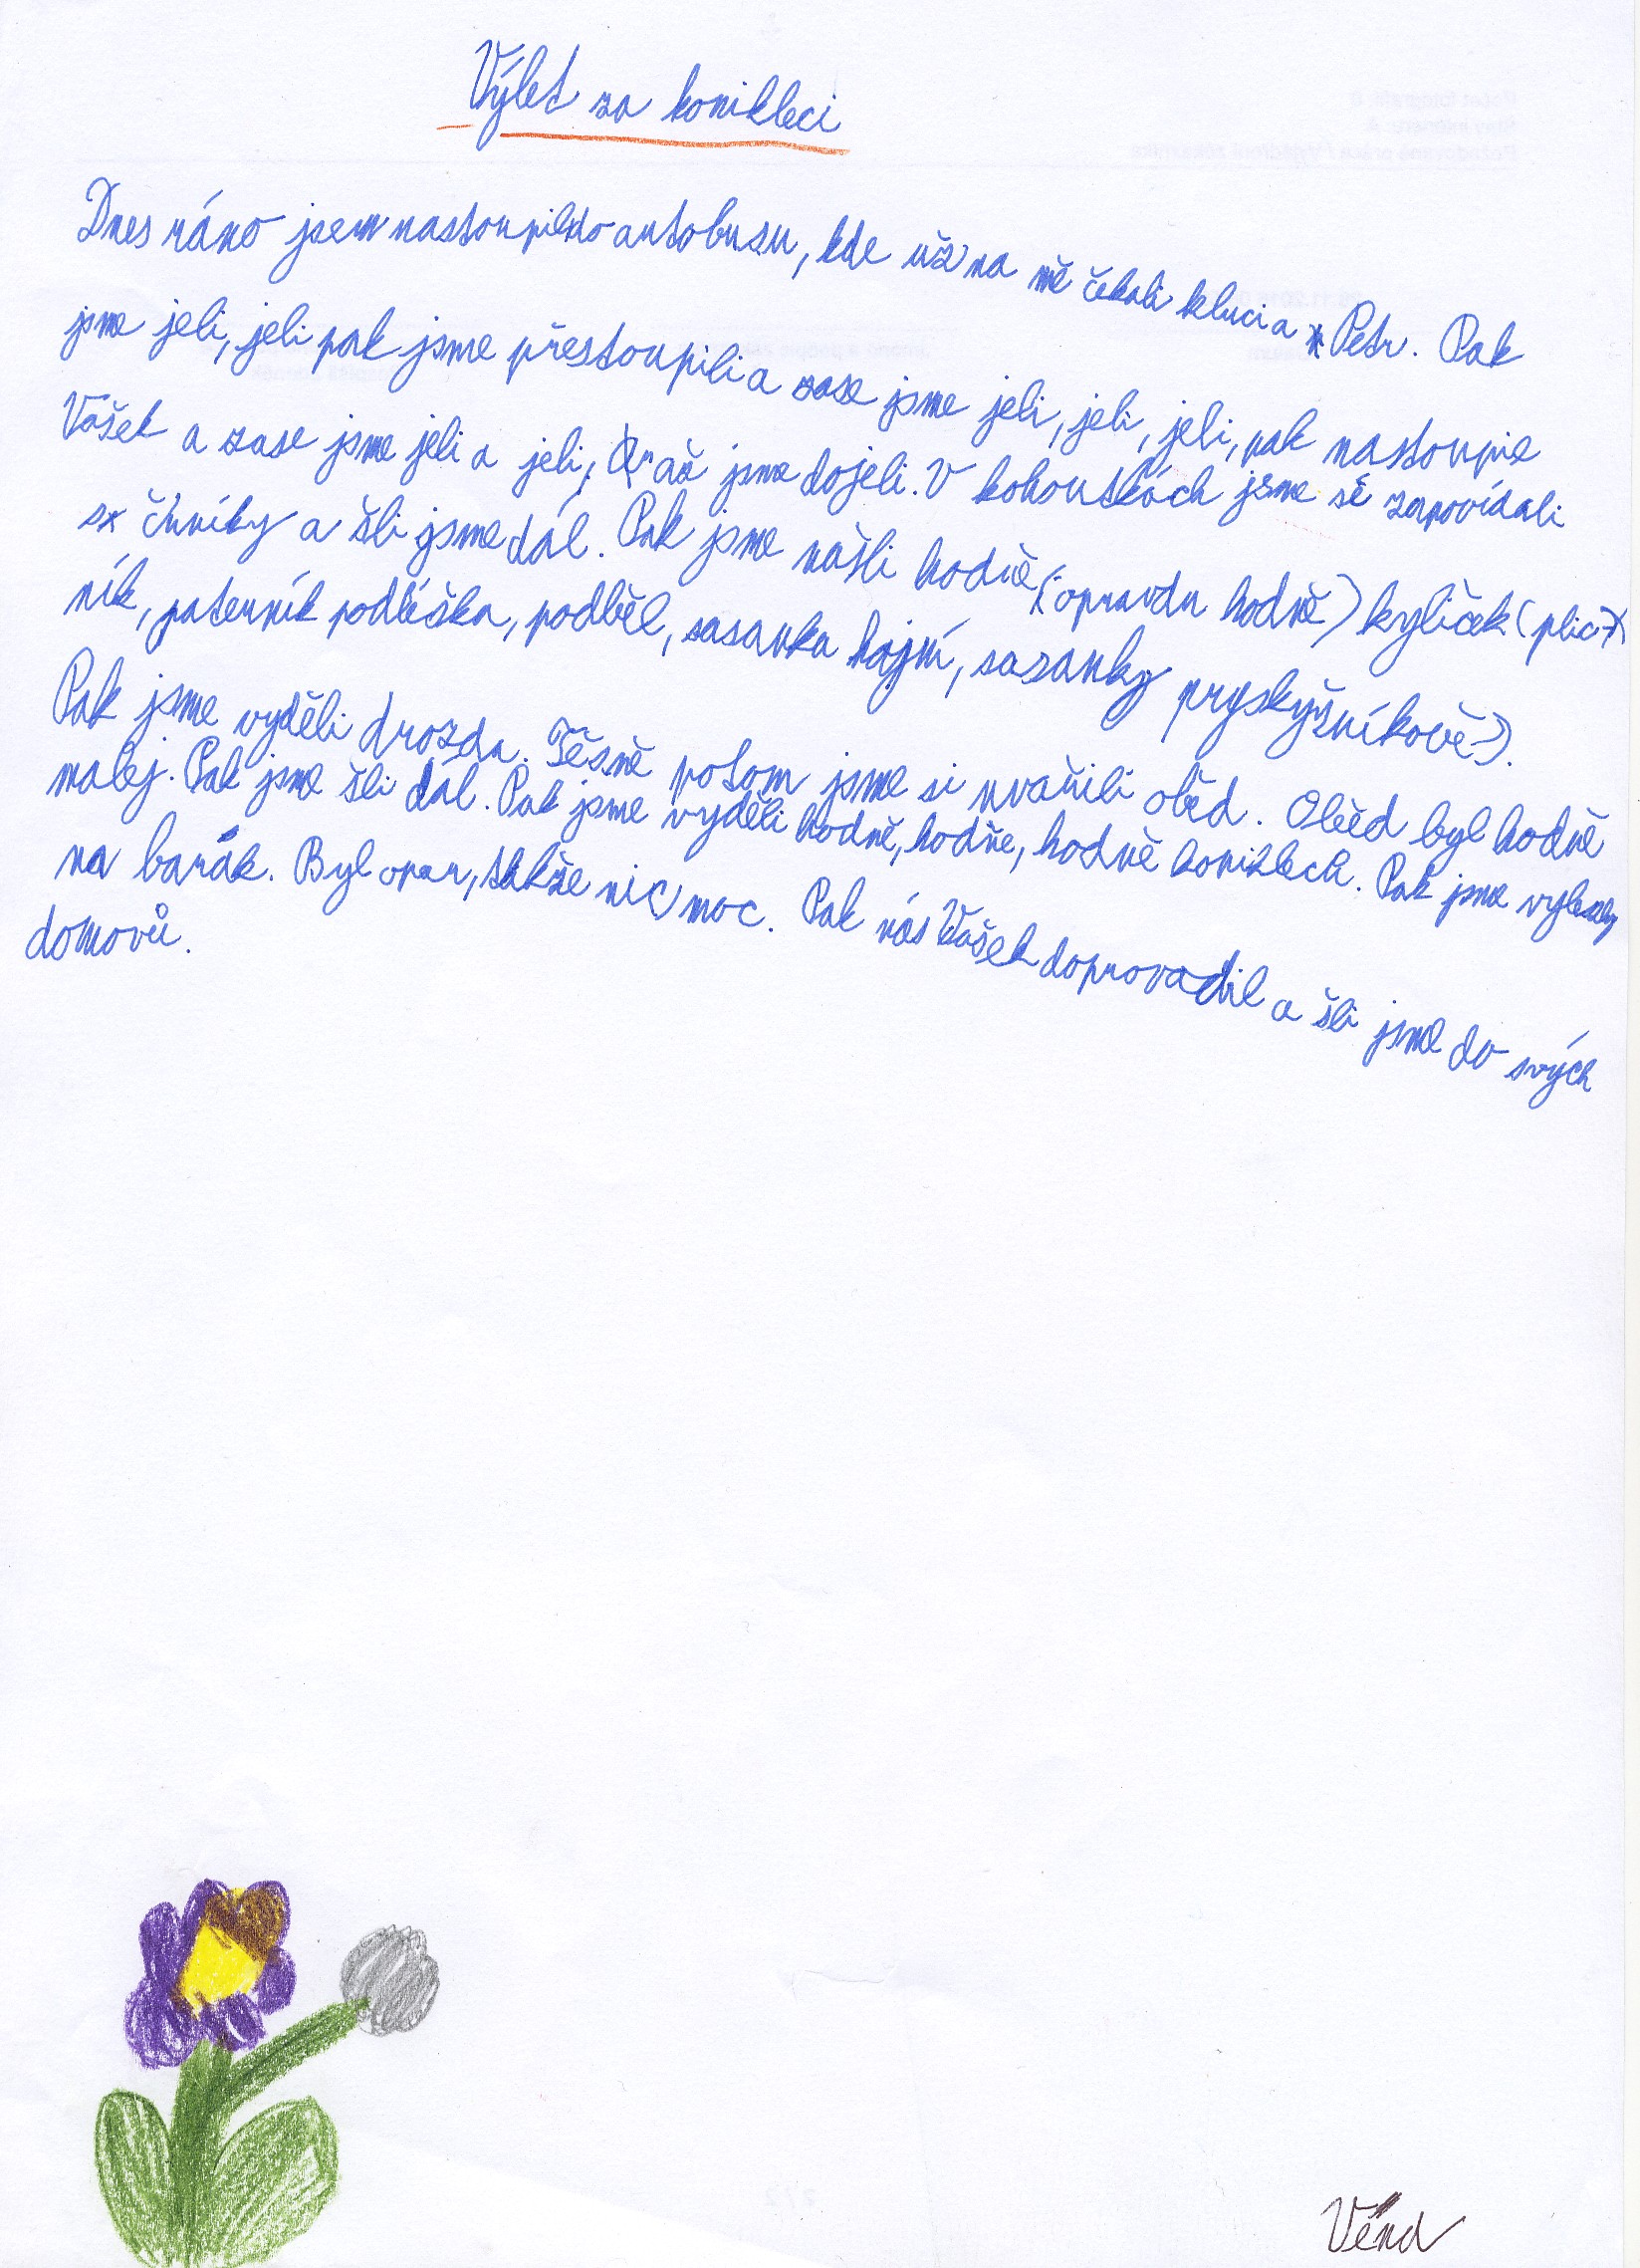 Výlet za konikleci
Dnes ráno jsem nastoupil do autobusu, kde už na mě čekali kluci a Petr. Pak
jsme jeli, jeli pak jsme přestoupili a zase jsme jeli, jeli, jeli, pak nastoupil
Vašek a zase jsme jeli a jeli, až jsme dojeli. V kohoutkách jsme se zapovídali
s čhníky a šli jsme dál. Pak jsme našli hodně (opravdu hodně) kytiček (plic-
ník, jaterník podléška, podběl, sasanka hajní, sasanky pryskyšníkově).
Pak jsme vyděli drozda. Těsně potom jsme si uvařili oběd. Oběd byl hodně
malej. Pak jsme šli dál. Pak jsme vyděli hodně, hodňe, hodně koniklech. Pak jsme vylezly
na barák. Byl opar, takže nic moc. Pak nás Vašek doprovadil a šli jsme do svých
domovů.
Véna